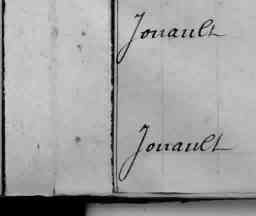 Jouault
Jouault